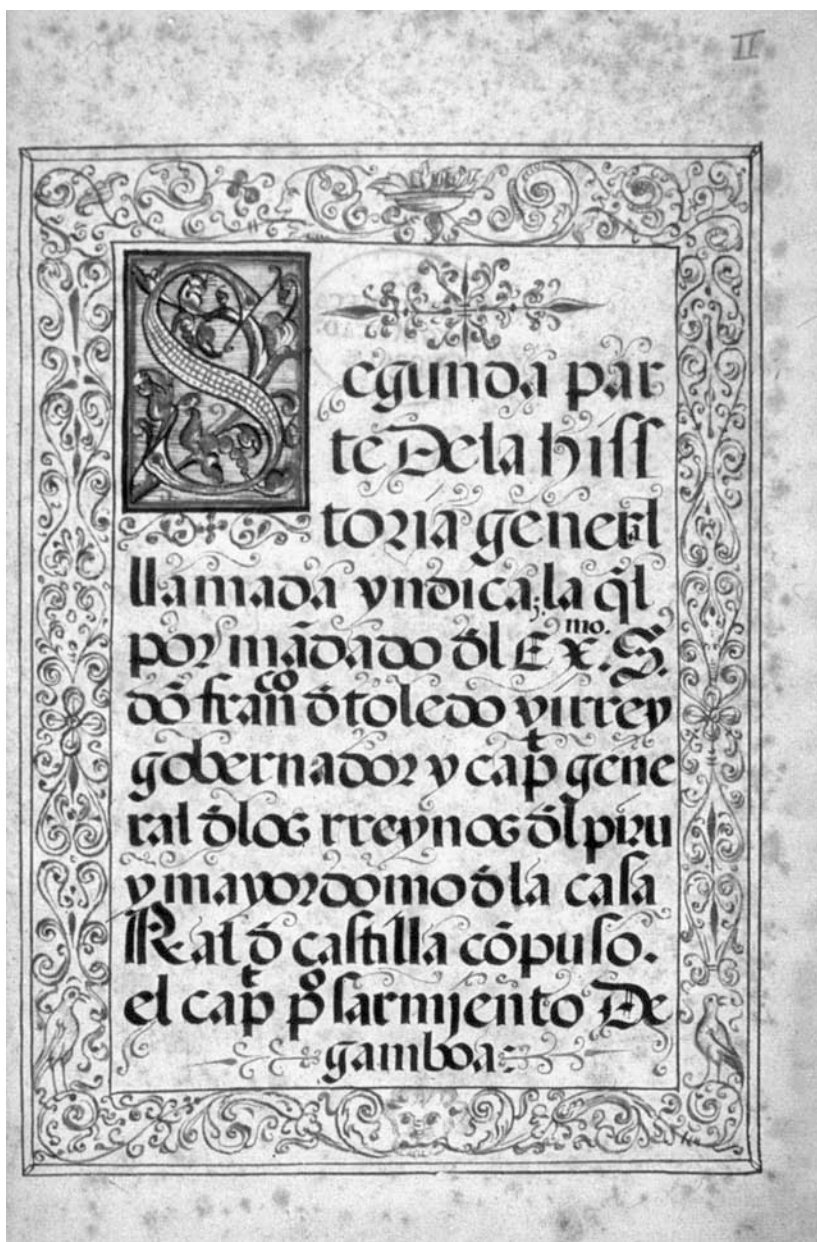 II
Segunda par
te Dela hiss
toria generl
llamada yndica; la q̄l
por mādado đl Exᵐᵒ. S.
dō franᶜᵒ đ toledo virrey
gobernador y capᵗ gene
ral đlos rreynos đl piru
y mayordomo đ la casa
Real đ castilla cōpuso.
el capᵗ pº sarmjento De
gamboa: